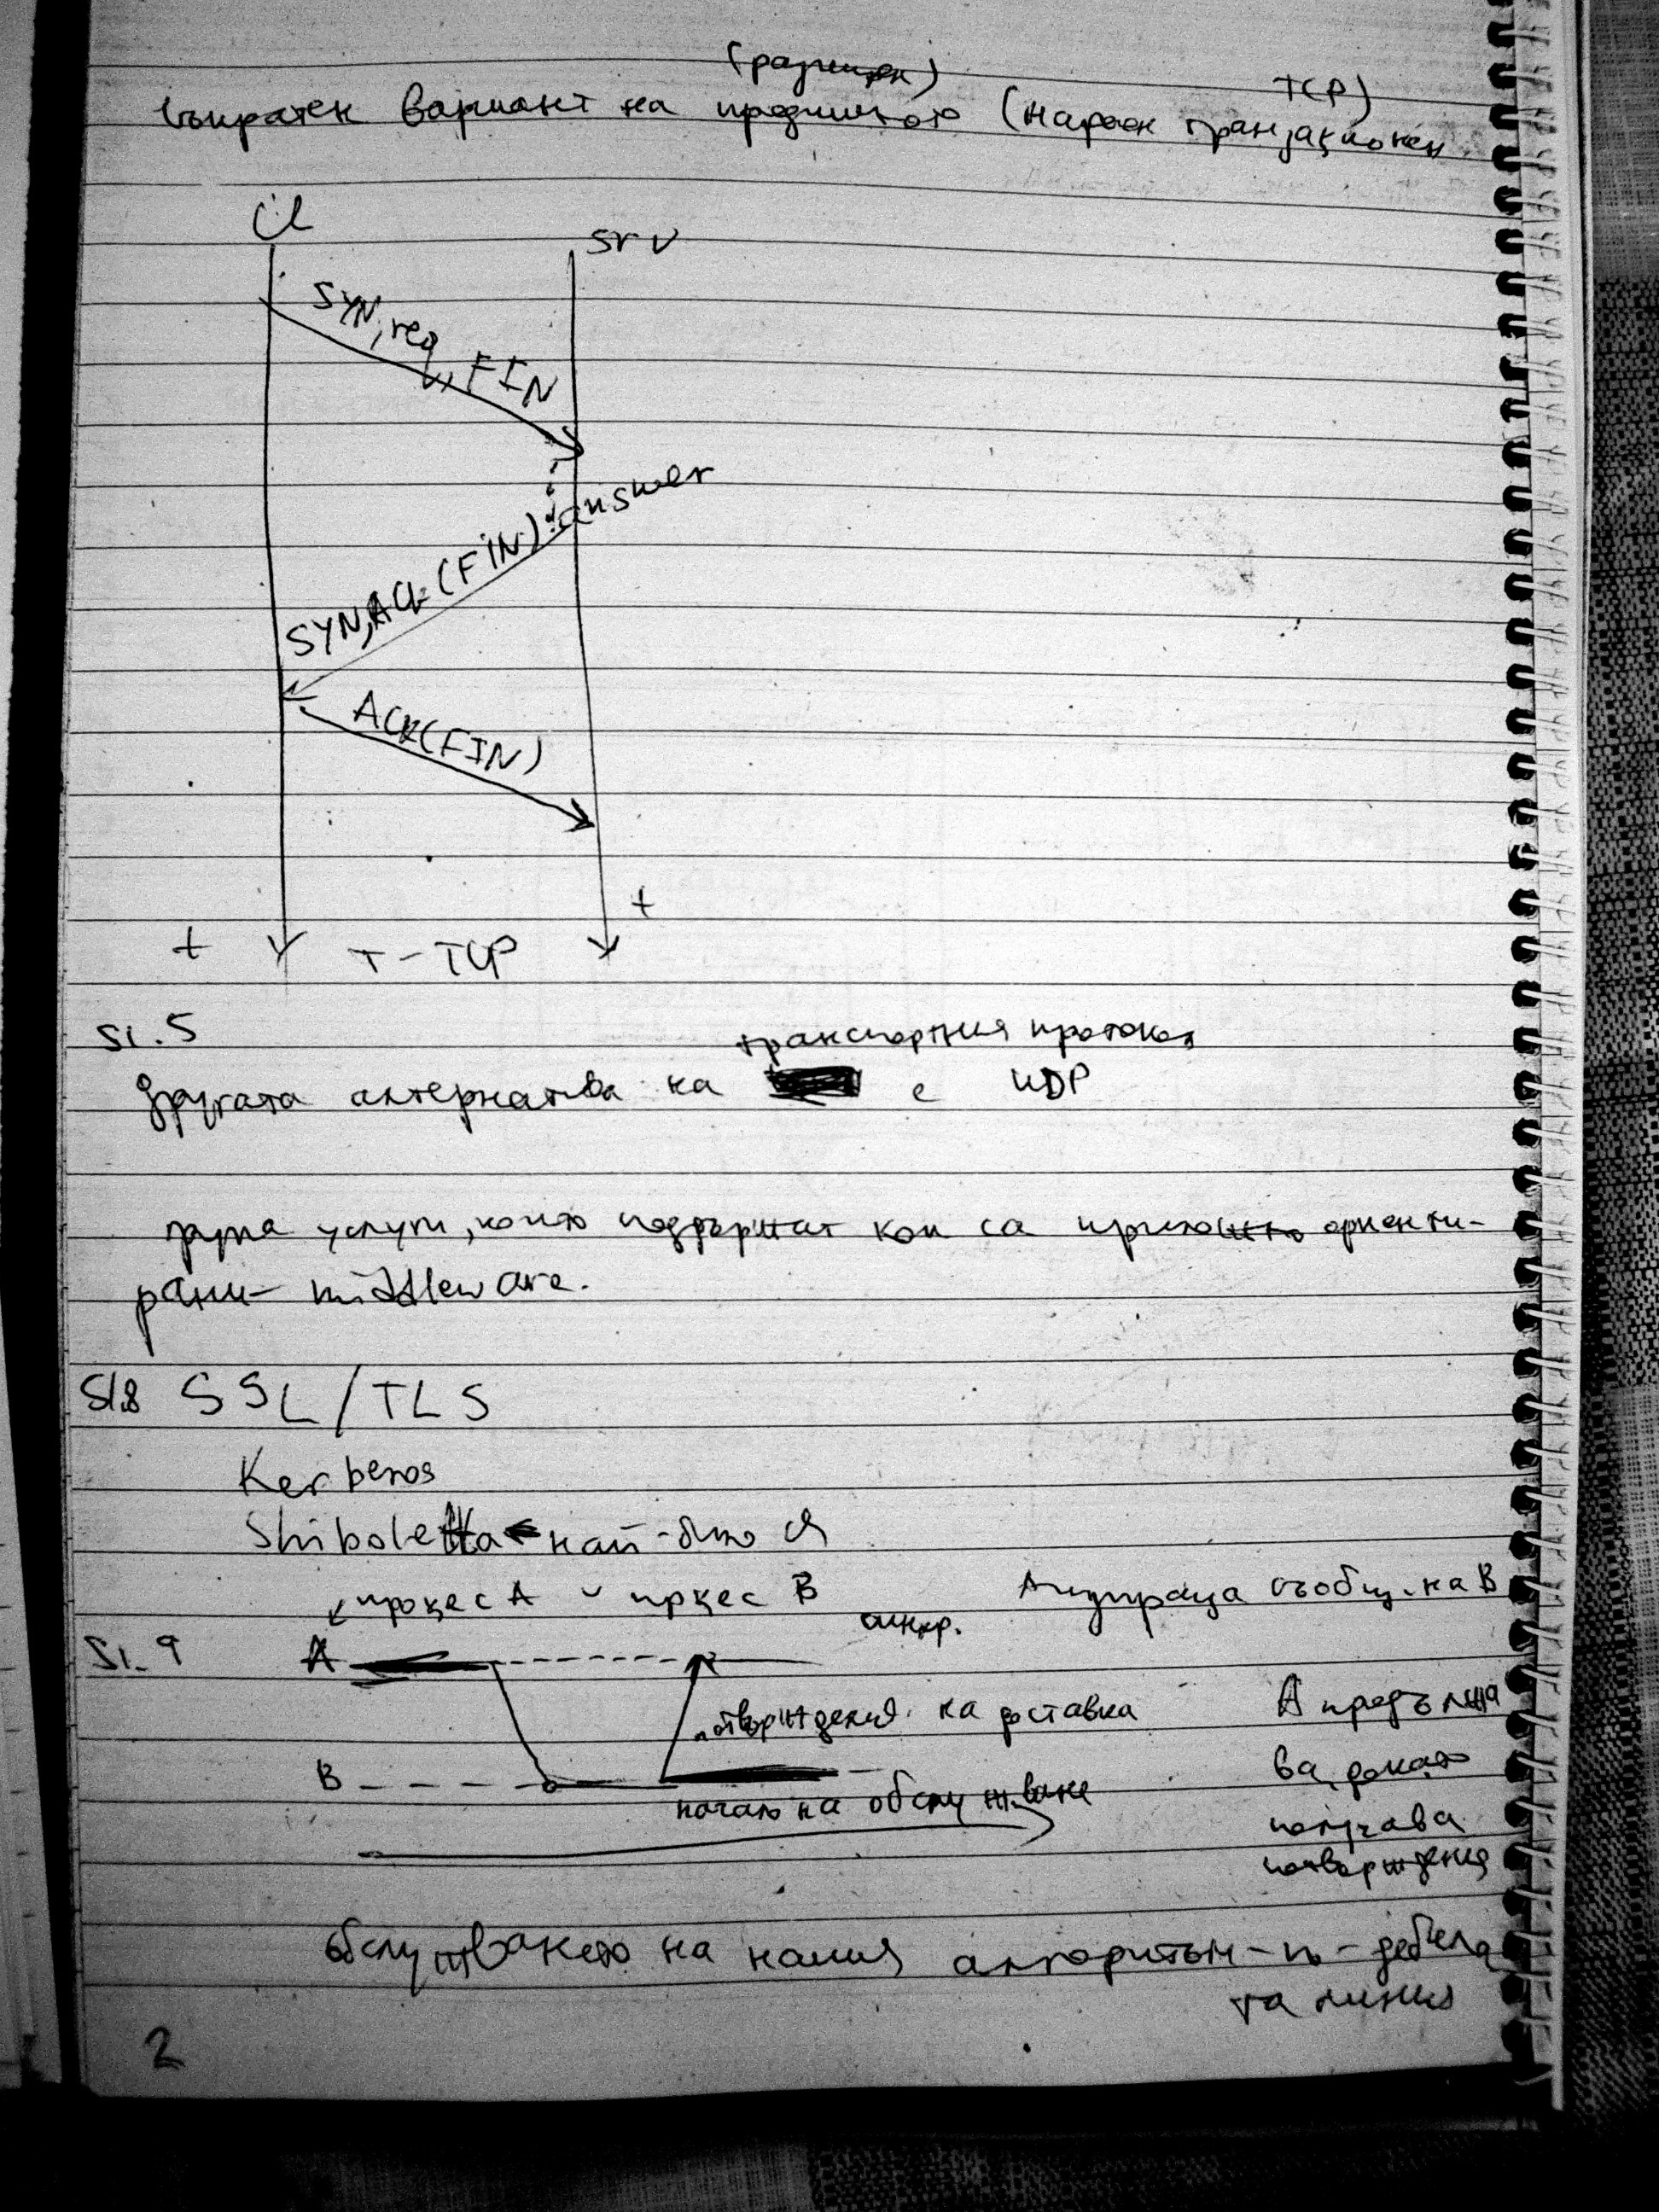 съкратен вариант на предишното (нарен транзакционен TCP)
Cl
srv
SYN, req, FIN
answer
SYN, ACK (FIN)
ACK(FIN)
t
t
T-TCP
Sl. 5
транспортния протокол
Другата алтернатива на е UDP
група услуги, които поддържат ком са ориенти-
рани - middleware.
Sl.8 SSL/TLS
Kerberos
най-
процес A процес B
A изпраща съобщ. на B
Sl. 9
A
потвърждения на доставка
A продължа
ва, докато
B
начало на обслужване
получава
потвърждения
обслужването на алгоритъм - по-дебела
та линия
2